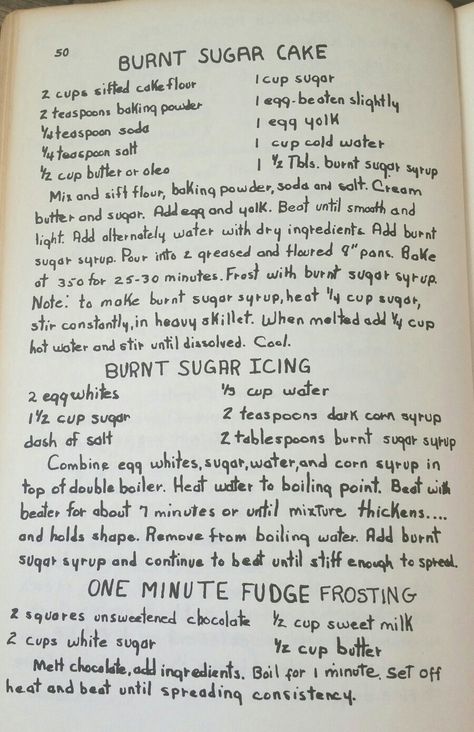 50
BURNT SUGAR CAKE
2 cups sifted cake flour 1 cup sugar
2 teaspoons baking powder 1 egg-beaten slightly
¼ teaspoon soda 1 egg yolk
¼ teaspoon salt 1 cup cold water
½ cup butter or oleo 1 ½ Tbls. burnt sugar syrup
Mix and sift flour, baking powder, soda and salt. Cream
butter and sugar. Add egg and yolk. Beat until smooth and
light. Add alternately water with dry ingredients. Add burnt
sugar syrup. Pour into 2 greased and floured 8" pans. Bake
at 350 for 25-30 minutes. Frost with burnt sugar syrup.
Note: to make burnt sugar syrup, heat ¼ cup sugar,
stir constantly, in heavy skillet. When melted add ¼ cup
hot water and stir until dissolved. Cool.
BURNT SUGAR ICING
2 egg whites ⅓ cup water
1½ cup sugar 2 teaspoons dark corn syrup
dash of salt 2 tablespoons burnt sugar syrup
Combine egg whites, sugar, water, and corn syrup in
top of double boiler. Heat water to boiling point. Beat with
beater for about 7 minutes or until mixture thickens....
and holds shape. Remove from boiling water. Add burnt
sugar syrup and continue to beat until stiff enough to spread.
ONE MINUTE FUDGE FROSTING
2 squares unsweetened chocolate ½ cup sweet milk
2 cups white sugar ½ cup butter
Melt chocolate, add ingredients. Boil for 1 minute. Set off
heat and beat until spreading consistency.